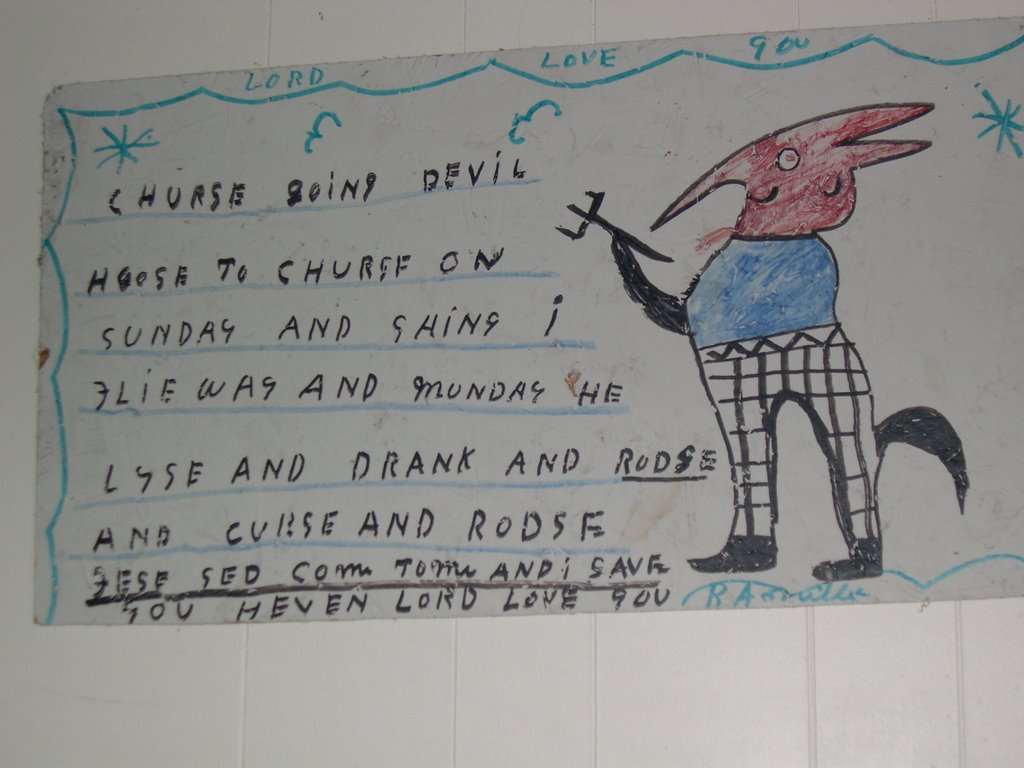 LORD LOVE YOU
CHURSE GOING DEVIL
HOOSE TO CHURSE ON
SUNDAY AND SHING I
JLIE WAY AND MUNDAY HE
LYSE AND DRANK AND RODSE
AND CURSE AND RODSE
JESE SED COME TOME AND I SAVE
YOU HEVEN LORD LOVE YOU